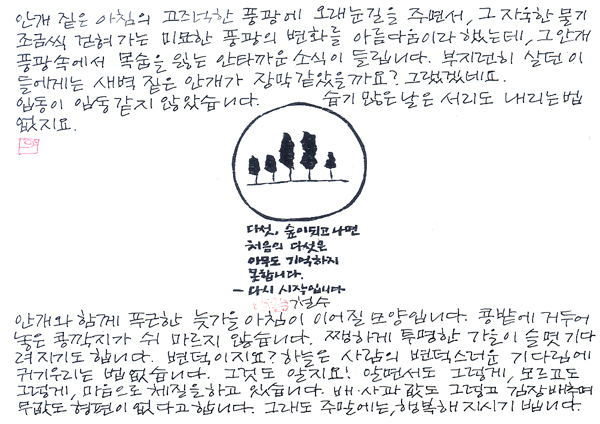 안개 짙은 아침의 고즈넉한 풍광에 오래눈길을 주면서, 그 자욱한 물기
조금씩 걷혀가는 미묘한 풍광의 변화를 아름다움이라 했는데, 그 안개
풍광속에서 목숨을 잃는 안타까운 소식이 들립니다. 부지런히 살던 이
들에게는 새벽 짙은 안개가 장막 같았을까요? 그랬겠네요.
입동이 입동 같지 않았습니다. 습기 많은날은 서리도 내리는법
없지요.
다섯, 숲이되고나면
처음의 다섯은
아무도 기억하지
못합니다.
- 다시 시작입니다
철수
안개와 함께 푸근한 늦가을 아침이 이어질 모양입니다. 콩밭에 거두어
놓은 콩깍지가 쉬 마르지 않습니다. 쨍하게 투명한 가을이 슬몃 기다
려지기도 합니다. 변덕이지요? 하늘은 사람의 변덕스러운 기다림에
귀기우리는 법 없습니다. 그것도 알지요! 알면서도 그렇게, 모르고도
그렇게, 마음으로 체질을하고 있습니다. 배·사과 값도 그렇고 김장배추며
무값도 형편이 없다고 합니다. 그래도 주말에는, 행복해 지시기 빕니다.